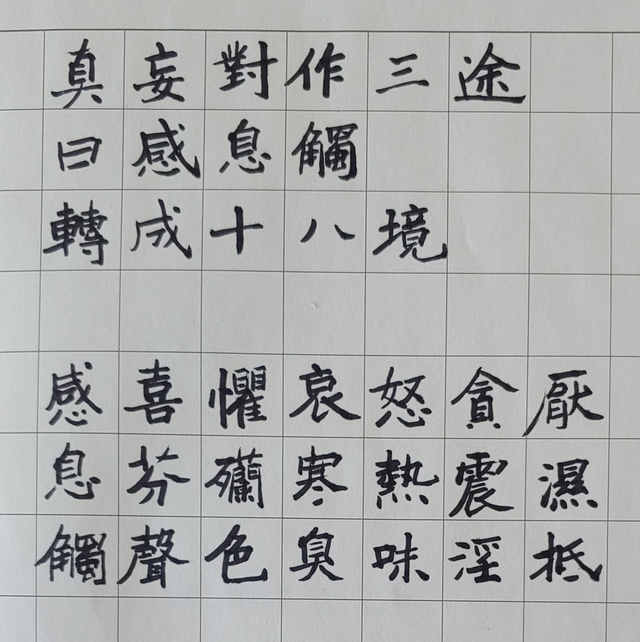 真妄對作三途
曰感息觸
轉成十八境
感喜懼哀怒貪厭
息芬𣩜寒熱震濕
觸聲色臭味淫抵